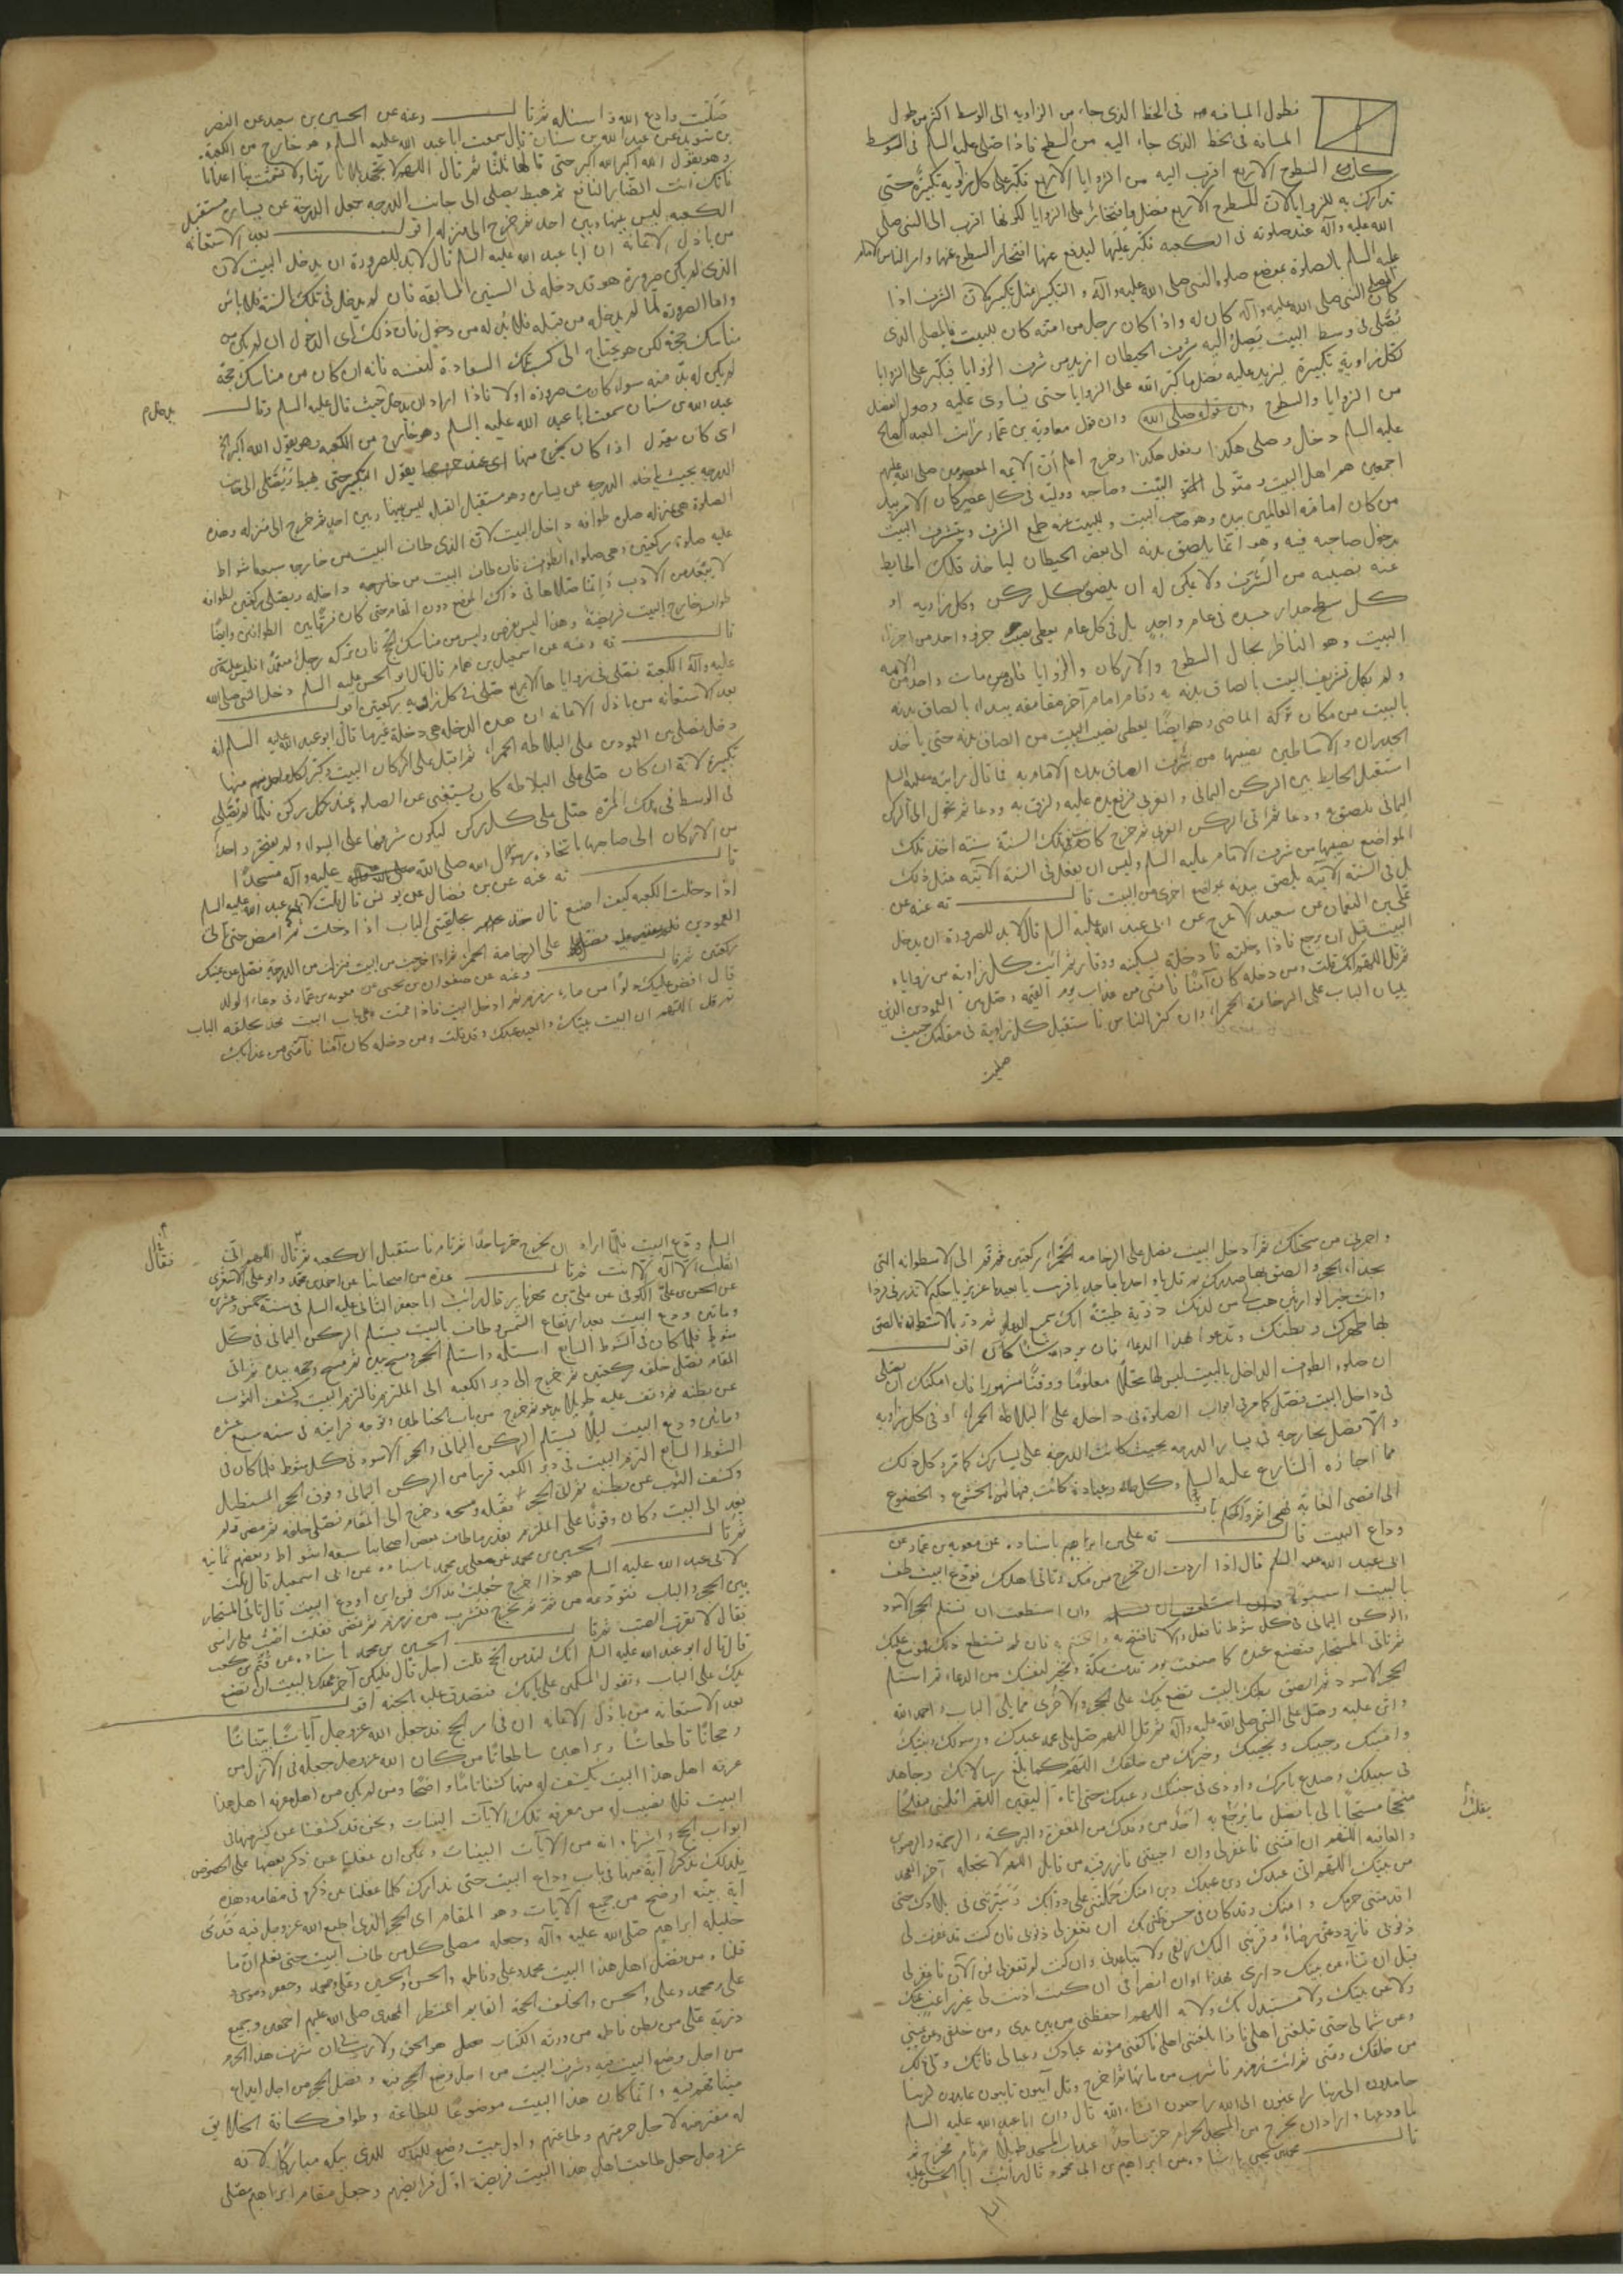 فطول المسافه في الخط الذي جاء من الزاويه الى الوسط اكثر من طول
المسافه في الخط الذي جاء اليه من السطح فاذا صلى عليه السلم في الوسط
كان السطوح الاربع اقرب اليه من الزوايا الاربع فكبر على كل زاويه تكبيرة حتى
تدارك به للزوايا لان للسطوح الاربع فضل وافتخار على الزوايا لكونها اقرب الى النبي صلى
الله عليه وآله عند صلوته في الكعبه فكبر عليها ليدفع عنها افتخار السطوح عنها وامر الناس
عليه السلم بالصلوة بموضع صلوة النبي صلى الله عليه وآله والتكبير مثل تكبيره لان الشرف اذا
كان النبي صلى الله عليه وآله كان له واذا كان رجل من امته كان للبيت فالمصلي الذي
يصلي في وسط البيت يصل اليه شرف الحيطان ازيد من شرف الزوايا فيكبر على الزوايا
لكل زاوية تكبيرة ليزيد عليه فضل ما كبر الله على الزوايا حتى يساوى عليه وصول الفضل
من الزوايا والسطوح وان قول معاوية بن عمار رايت العبد الصالح
عليه السلم دخل وصلى هكذا وفعل هكذا وخرج اعلم أن الايمه المعصومين صلى الله عليهم
اجمعين هم اهل البيت ومتولى البيت وصاحبه ووليه في كل عصر كان الامر بيد
من كان امامة العالمين بيده وهو صاحب البيت وللبيت فيه طمع الشرف ويتشرف البيت
بدخول صاحبه فيه وهو انما يلصق بدنه الى بعض الحيطان لياخذ تلك الحايط
عنه نصيبه من الشرف ولا يمكن له ان يلصق بكل ركن وكل زاويه او
كل سطح جدار جسده في عام واحد بل في كل عام يعطى نصيب جزء واحد من اجزاء
البيت وهو الناظر بحال السطوح والاركان والزوايا فان مات واحد من الايمه
ولم يكمل تشريف البيت بالصاق بدنه به وقام امام آخر مقامه يبداء بالصاق بدنه
بالبيت من مكان تركه الماضي وهو ايضا يعطى نصيب البيت من الصاق بدنه حتى ياخذ
الجدران والاساطين نصيبها من شرف الصاق بدن الامام به فما قال رايته عليه السلم
استقبل الحايط بين الركن اليماني والغربي فرفع يده عليه ولزق به ودعا ثم تحول الى الركن
اليماني فلصق به ودعا ثم اتى الركن الغربي ثم خرج كانت في تلك السنة سنة اخذ تلك
المواضع نصيبها من شرف الامام عليه السلم وليس ان يفعل في السنة الآتيه مثل ذلك
بل في السنة الآتيه يلصق بدنه بمواضع اخرى من البيت قال ته عنه عن
علي بن النعمان عن سعيد الاعرج عن ابى عبد الله عليه السلم قال لا بد للصرورة ان يدخل
البيت قبل ان يرجع فاذا دخلته فادخله بسكينه ووقار ثم ائت كل زاوية من زواياه
ثم قل اللهم انك قلت ومن دخله كان آمنا فآمني من عذاب يوم القيمه وصل بين العمودين الذين
يليان الباب على الرخامة الحمراء وان كثر الناس فاستقبل كل زاوية في مقامك حيث
صليت
صليت وادع الله واسئله ثم قال وعنه عن الحسين بن سعيد عن النضر
بن سويد عن عبد الله بن سنان قال سمعت ابا عبد الله عليه السلم وهو خارج من الكعبة
وهو يقول الله اكبر الله اكبر حتى قالها ثلثا ثم قال اللهم لا تجهد بلاءنا ربنا ولا تشمت بنا اعداءنا
فانك انت الضار النافع ثم هبط يصلي الى جانب الدرجه جعل الدرجة عن يساره مستقبل
الكعبه ليس بينها وبين احد ثم خرج الى منزله اقول بعد الاستعانه
من باذل الامانه ان ابا عبد الله عليه السلم قال لابد للصرورة ان يدخل البيت لان
الذي لم يكن صرورة هو قد دخله في السنين السابقه فان لم يدخل في تلك السنة فلا باس
واما الصرورة لما لم يدخله من قبله فلا بد له من دخول فان ذلك اى الدخول ان لم يكن من
مناسك حجة لكن هو يحتاج الى كسب تلك السعادة لنفسه فانه ان كان من مناسك حجة
لم يكن له بد منه سواء كانت صرورة اولا فاذا اراد ان يدخل حيث قال عليه السلم وقال
يدخل م
عبد الله بن سنان سمعت ابا عبد الله عليه السلم وهو خارج من الكعبه وهو يقول الله اكبر الخ
اى كان يقول اذا كان يخرج منها يقول التكبير حتى يهبط ويصلي الى جانب
الدرجه بحيث ياخذ الدرجه عن يساره وهو مستقبل القبله ليس بينها وبين احد ثم خرج الى منزله وهذه
الصلوة هي بمنزله صلوة طوافه داخل البيت لان الذي طاف البيت من خارجه سبعة اشواط
عليه صلوة ركعتين وهي صلواة الطواف فان طاف البيت من خارجه وداخله ويصلي ركعتين لطوافه
قال ته وعنه عن اسمعيل بن همام قال قال ابو الحسن عليه السلم دخل النبي صلى الله
عليه وآله الكعبة فصلى في زواياها الاربع صلى في كل زاويه ركعتين اقول
بعد الاستعانه من باذل الامانه ان هذه الدخله هي دخلة غيرها قال ابو عبد الله عليه السلم انه
دخل فصلى بين العمودين على البلاطة الحمراء ثم اقبل على اركان البيت وكبر لكل منها
تكبيرة لانه ان كان صلى على البلاطة كان يستغنى عن الصلوة عند كل ركن فلما لم يصلي
في الوسط في تلك المرة صلى على كل ركن ليكون شرفها على السواء ولم يفتخر واحد
من الاركان الى صاحبها باتخاذه رسول الله صلى الله عليه وآله مسجدا
قال ته عنه عن بن فضال عن يونس قال قلت لابى عبد الله عليه السلم
اذا دخلت الكعبه كيف اصنع قال خذ بحلقتي الباب اذا دخلت ثم امض حتى تاتي
العمودين فصل على الرخامة الحمراء ثم اذا خرجت من البيت فنزلت من الدرجه فصل عن يمينك
ركعتين ثم قال وعنه عن صفوان بن يحيى عن معويه بن عمار في دعاء الولد
قال افض عليك دلوا من ماء زمزم ثم ادخل البيت فاذا قمت على باب البيت فخذ بحلقه الباب
ثم قل اللهم ان البيت بيتك والعبد عبدك وقد قلت ومن دخله كان آمنا فآمني من عذابك
واجرني من سخطك ثم ادخل البيت فصل على الرخامه الحمراء ركعتين ثم قم الى الاسطوانه التى
بحذاء الحجر والصق بها صدرك ثم قل يا واحد يا ماجد يا قريب يا بعيد يا عزيز يا حكيم لا تذرني فردا
وانت خير الوارثين هب لي من لدنك ذرية طيبة انك سميع الدعاء ثم در بالاسطوانه فالصق
بها ظهرك وبطنك وتدعوا بهذا الدعاء فان يرد الله شيئا كان اقول
ان صلوة الطواف الداخل بالبيت ليس لها محلا معلوما ووقتا مشهورا فان امكنك ان تصلي
في داخل البيت فصل كما مر في ابواب الصلوة في داخله على البلاطة الحمراء او في كل زاويه
والا فصل بخارجه في يسار الدرجه بحيث كانت الدرجة على يسارك كما مر وكل ذلك
مما اجازه الشارع عليه السلم وكل عبادة كانت فيها الخشوع والخضوع
الى اقصى الغاية فهي اتم واكمل باب
وداع البيت قال ته علي بن ابراهيم باسناده عن معويه بن عمار عن
ابى عبد الله عليه السلم قال اذا اردت ان تخرج من مكه وتاتى اهلك فودع البيت وطف
بالبيت اسبوعا وان استطعت ان تستلم الحجر الاسود
والركن اليماني في كل شوط فافعل والا فافتح به واختم به فان لم تستطع ذلك فموسع عليك
ثم تاتى المستجار فتصنع عنده كما صنعت يوم قدمت مكة وتخير لنفسك من الدعاء ثم استلم
الحجر الاسود ثم الصق بطنك بالبيت تضع يدك على الحجر والاخرى مما يلى الباب واحمد الله
واثن عليه وصل على النبي صلى الله عليه وآله ثم قل اللهم صل على محمد عبدك ورسولك ونبيك
وامينك وحبيبك ونجيبك وخيرتك من خلقك اللهم كما بلغ رسالاتك وجاهد
في سبيلك وصدع بامرك واوذى في جنبك وعبدك حتى اتاه اليقين اللهم اقلبني مفلحا
منجحا مستجابا لى بافضل ما يرجع به احد من وفدك من المغفرة والبركة والرحمة والرضوان
والعافيه اللهم ان امتني فاغفرلى وان احييتني فارزقنيه من قابل اللهم لا تجعله آخر العهد
من بيتك اللهم انى عبدك وبن عبدك وبن امتك حملتني على دوابك وسيرتني في بلادك حتى
اقدمتني حرمك وامنك وقد كان في حسن ظني بك ان تغفر لى ذنوبى فان كنت قد غفرت لى
ذنوبى فازدد عني رضاء وقربني اليك زلفى ولا تباعدني وان كنت لم تغفر لى فمن الآن فاغفر لى
قبل ان تنآء عن بيتك دارى فهذا اوان انصرافي ان كنت اذنت لى غير راغب عنك
ولا عن بيتك ولا مستبدل بك ولا به اللهم احفظني من بين يدى ومن خلفى وعن يمينى
وعن شمالى حتى تبلغني اهلى فاذا بلغتني اهلى فاكفني مؤنه عبادك وعيالى فانك ولى ذلك
من خلقك ومني ثم ائت زمزم فاشرب من مائها ثم اخرج وقل آيبون تايبون عابدون لربنا
حامدون الى ربنا راغبون الى الله راجعون انشاء الله قال وان ابا عبد الله عليه السلم
لما ودعها واراد ان يخرج من المسجد الحرام خر ساجدا عند باب المسجد طويلا ثم قام فخرج ثم
قال محمد بن يحيى باسناده عن ابراهيم بن ابى محمود قال رايت ابا الحسن عليه
السلم ودع البيت فلما اراد ان يخرج خر ساجدا ثم قام فاستقبل الكعبه ثم قال اللهم انى
فقال
انقلب الا اله الا انت ثم قال عدة من اصحابنا عن احمد بن محمد وابو على الاشعرى
عن الحسن بن على الكوفى عن على بن مهزيار قال رايت ابا جعفر الثاني عليه السلم في سنة خمس وعشرين
وماتين ودع البيت بعد ارتفاع الشمس وطاف بالبيت يستلم الركن اليماني في كل
شوط فلما كان في الشوط السابع استلمه واستلم الحجر ومسح بيده ثم مسح وجهه بيده ثم اتى
المقام فصلى خلفه ركعتين ثم خرج الى دبر الكعبه الى الملتزم فالتزم البيت وكشف الثوب
عن بطنه ثم وقف عليه طويلا يدعو ثم خرج من باب الحناطين وتوجه فرايته في سنه سبع عشره
وماتين ودع البيت ليلا يستلم الركن اليماني والحجر الاسود في كل شوط فلما كان في
الشوط السابع التزم البيت في دبر الكعبه قريبا من الركن اليماني وفوق الحجر المستطيل
وكشف الثوب عن بطنه ثم اتى الحجر فقبله ومسحه وخرج الى المقام فصلى خلفه ثم مضى ولم
يعد الى البيت وكان وقوفه على الملتزم بقدر ما طاف بعض اصحابنا سبعه اشواط وبعضهم ثمانيه
ثم قال الحسين بن محمد عن معلى بن محمد باسناده عن ابى اسمعيل قال قلت
لابى عبد الله عليه السلم هو ذا اخرج جعلت فداك فمن اين اودع البيت قال تاتى المستجار
بين الحجر والباب فتودعه من ثم ثم تخرج فتشرب من زمزم ثم تمضى فقلت اصب على راسى
فقال لا تقرب الصب ثم قال الحسين بن محمد باسناده عن قثم بن كعب
قال قال ابو عبد الله عليه السلم انك لتدمن الحج قلت اجل قال فليكن آخر عهدك بالبيت ان تضع
يدك على الباب وتقول المسكين على بابك فتصدق عليه بالجنه اقول
بعد الاستعانه من باذل الامانه ان في امر الحج قد جعل الله عز وجل آياتا بيناتا
وحججا قاطعاتا وبراهين ساطعاتا من كان الله عز وجل جعله في الازل من
عرفه اهل هذا البيت يكشف له منها كشفا تاما واضحا ومن لم يكن من اهل معرفه اهل هذا
البيت فلا نصيب له من معرفه تلك الآيات البينات ونحن قد كشفنا عن كثير منها في
ابواب الحج واشرنا انه من الآيات البينات ويمكن ان غفلنا عن ذكر بعضها على الخصوص
فلذلك نذكر آية منها في باب وداع البيت حتى تدارك كلما غفلنا عن ذكره في مقامه وهذه
آية بينه اوضح من جميع الآيات وهو المقام اى الحجر الذي اطبع الله عز وجل فيه قدمى
خليله ابراهيم صلى الله عليه وآله وجعله مصلى كل من طاف البيت حتى نعلم ان ما
قلناه من فضل اهل هذا البيت محمد وعلى وفاطمه والحسن والحسين وعلى ومحمد وجعفر وموسى و
على ومحمد وعلى والحسن والخلف الحجه القايم المنتظر المهدى صلى الله عليهم اجمعين وجميع
ذرية على من بطن فاطمه من ورثه الكتاب فهل هو الحق ولا ريب ان شرف هذا الحجر
من اجل وضع البيت فيه وشرف البيت من اجل وضع الحجر فيه وفضل الحجر من اجل ايداع
ميثاقهم فيه وانما كان هذا البيت موضوعا للطاعة وطواف كافة الخلايق
له مفترضه لاجل حرمتهم وطاعتهم واول بيت وضع للناس للذى ببكه مباركا لانه
عز وجل جعل طاعت اهل هذا البيت فريضة اول فرايضهم وجعل مقام ابراهيم مصلى